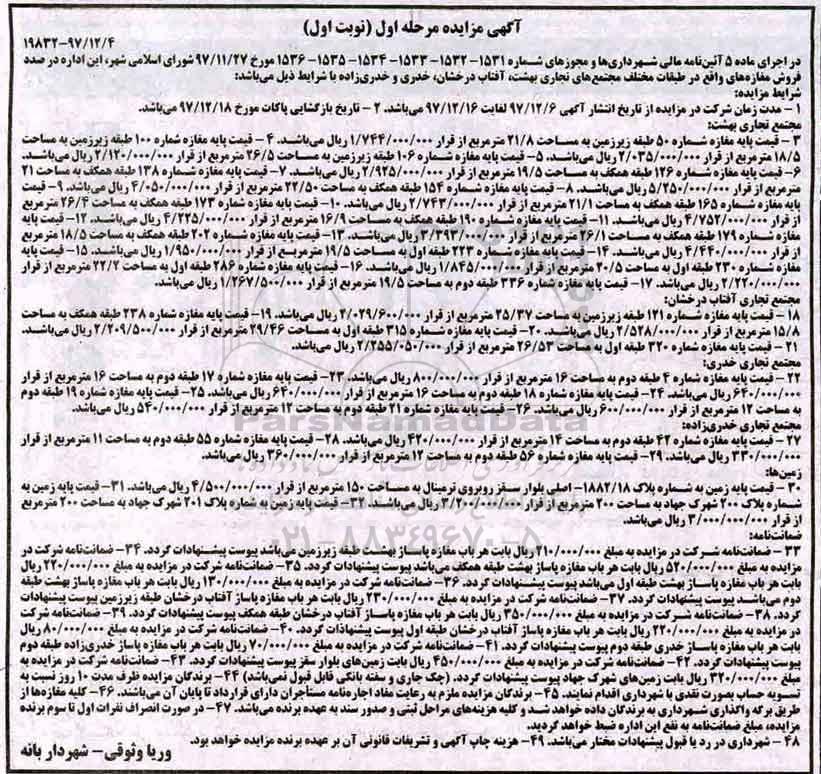 آگهی مزایده مرحله اول (نوبت اول)
۱۹۸۳۲-۹۷/۱۲/۴
در اجرای ماده ۵ آئین‌نامه مالی شهرداری‌ها و مجوزهای شماره ۱۵۳۱- ۱۵۳۲- ۱۵۳۳- ۱۵۳۴- ۱۵۳۵- ۱۵۳۶ مورخ ۹۷/۱۱/۲۷ شورای اسلامی شهر، این اداره در صدد
فروش مغازه‌های واقع در طبقات مختلف مجتمع‌های تجاری بهشت، آفتاب درخشان، خدری و خدری‌زاده با شرایط ذیل می‌باشد:
شرایط مزایده:
۱ – مدت زمان شرکت در مزایده از تاریخ انتشار آگهی ۹۷/۱۲/۶ لغایت ۹۷/۱۲/۱۶ می‌باشد. ۲ – تاریخ بازگشایی پاکات مورخ ۹۷/۱۲/۱۸ می‌باشد.
مجتمع تجاری بهشت:
۳ – قیمت پایه مغازه شماره ۵۰ طبقه زیرزمین به مساحت ۲۱/۸ مترمربع از قرار ۱/۷۴۴/۰۰۰/۰۰۰ ریال می‌باشد. ۴ – قیمت پایه مغازه شماره ۱۰۰ طبقه زیرزمین به مساحت
۱۸/۵ مترمربع از قرار ۲/۰۳۵/۰۰۰/۰۰۰ ریال می‌باشد. ۵- قیمت پایه مغازه شماره ۱۰۶ طبقه زیرزمین به مساحت ۲۶/۵ مترمربع از قرار ۲/۱۲۰/۰۰۰/۰۰۰ ریال می‌باشد.
۶- قیمت پایه مغازه شماره ۱۲۶ طبقه همکف به مساحت ۱۹/۵ مترمربع از قرار ۲/۹۲۵/۰۰۰/۰۰۰ ریال می‌باشد. ۷- قیمت پایه مغازه شماره ۱۳۸ طبقه همکف به مساحت ۲۱
مترمربع از قرار ۵/۲۵۰/۰۰۰/۰۰۰ ریال می‌باشد. ۸- قیمت پایه مغازه شماره ۱۵۴ طبقه همکف به مساحت ۲۲/۵۰ مترمربع از قرار ۴/۰۵۰/۰۰۰/۰۰۰ ریال می‌باشد. ۹- قیمت
پایه مغازه شماره ۱۶۵ طبقه همکف به مساحت ۲۱/۱ مترمربع از قرار ۲/۷۴۳/۰۰۰/۰۰۰ ریال می‌باشد. ۱۰- قیمت پایه مغازه شماره ۱۷۳ طبقه همکف به مساحت ۲۶/۴ مترمربع
از قرار ۴/۷۵۲/۰۰۰/۰۰۰ ریال می‌باشد. ۱۱- قیمت پایه مغازه شماره ۱۹۰ طبقه همکف به مساحت ۱۶/۹ مترمربع از قرار ۴/۲۲۵/۰۰۰/۰۰۰ ریال می‌باشد. ۱۲- قیمت پایه
مغازه شماره ۱۷۹ طبقه همکف به مساحت ۲۶/۱ مترمربع از قرار ۳/۳۹۳/۰۰۰/۰۰۰ ریال می‌باشد. ۱۳- قیمت پایه مغازه شماره ۲۰۲ طبقه همکف به مساحت ۱۸/۵ مترمربع
از قرار ۴/۴۴۰/۰۰۰/۰۰۰ ریال می‌باشد. ۱۴- قیمت پایه مغازه شماره ۲۲۳ طبقه اول به مساحت ۱۹/۵ مترمربع از قرار ۱/۹۵۰/۰۰۰/۰۰۰ ریال می‌باشد. ۱۵- قیمت پایه
مغازه شماره ۲۳۰ طبقه اول به مساحت ۲۰/۵ مترمربع از قرار ۱/۸۴۵/۰۰۰/۰۰۰ ریال می‌باشد. ۱۶- قیمت پایه مغازه شماره ۲۸۶ طبقه اول به مساحت ۲۲/۲ مترمربع از قرار
۲/۲۲۰/۰۰۰/۰۰۰ ریال می‌باشد. ۱۷- قیمت پایه مغازه شماره ۳۳۶ طبقه دوم به مساحت ۱۹/۵ مترمربع از قرار ۱/۲۶۷/۵۰۰/۰۰۰ ریال می‌باشد.
مجتمع تجاری آفتاب درخشان:
۱۸ – قیمت پایه مغازه شماره ۱۲۱ طبقه زیرزمین به مساحت ۲۵/۳۷ مترمربع از قرار ۲/۰۲۹/۶۰۰/۰۰۰ ریال می‌باشد. ۱۹- قیمت پایه مغازه شماره ۲۳۸ طبقه همکف به مساحت
۱۵/۸ مترمربع از قرار ۲/۵۲۸/۰۰۰/۰۰۰ ریال می‌باشد. ۲۰- قیمت پایه مغازه شماره ۳۱۵ طبقه اول به مساحت ۲۹/۴۶ مترمربع از قرار ۲/۲۰۹/۵۰۰/۰۰۰ ریال می‌باشد.
۲۱ – قیمت پایه مغازه شماره ۳۲۰ طبقه اول به مساحت ۲۶/۵۳ مترمربع از قرار ۲/۲۵۵/۰۵۰/۰۰۰ ریال می‌باشد.
مجتمع تجاری خدری:
۲۲ – قیمت پایه مغازه شماره ۴ طبقه دوم به مساحت ۱۶ مترمربع از قرار ۸۰۰/۰۰۰/۰۰۰ ریال می‌باشد. ۲۳- قیمت پایه مغازه شماره ۱۷ طبقه دوم به مساحت ۱۶ مترمربع از قرار
۶۴۰/۰۰۰/۰۰۰ ریال می‌باشد. ۲۴- قیمت پایه مغازه شماره ۱۸ طبقه دوم به مساحت ۱۶ مترمربع از قرار ۶۴۰/۰۰۰/۰۰۰ ریال می‌باشد. ۲۵- قیمت پایه مغازه شماره ۱۹ طبقه دوم
به مساحت ۱۲ مترمربع از قرار ۶۰۰/۰۰۰/۰۰۰ ریال می‌باشد. ۲۶- قیمت پایه مغازه شماره ۲۱ طبقه دوم به مساحت ۱۲ مترمربع از قرار ۵۴۰/۰۰۰/۰۰۰ ریال می‌باشد.
مجتمع تجاری خدری‌زاده:
۲۷ – قیمت پایه مغازه شماره ۴۲ طبقه دوم به مساحت ۱۴ مترمربع از قرار ۴۲۰/۰۰۰/۰۰۰ ریال می‌باشد. ۲۸- قیمت پایه مغازه شماره ۵۵ طبقه دوم به مساحت ۱۱ مترمربع از قرار
۳۳۰/۰۰۰/۰۰۰ ریال می‌باشد. ۲۹- قیمت پایه مغازه شماره ۵۶ طبقه دوم به مساحت ۱۲ مترمربع از قرار ۳۶۰/۰۰۰/۰۰۰ ریال می‌باشد.
زمین‌ها:
۳۰ – قیمت پایه زمین به شماره پلاک ۱۸۸۲/۱۸- اصلی بلوار سقز روبروی ترمینال به مساحت ۱۵۰ مترمربع از قرار ۴/۵۰۰/۰۰۰/۰۰۰ ریال می‌باشد. ۳۱- قیمت پایه زمین به
شماره پلاک ۲۰۰ شهرک جهاد به مساحت ۲۰۰ مترمربع از قرار ۳/۲۰۰/۰۰۰/۰۰۰ ریال می‌باشد. ۳۲- قیمت پایه زمین به شماره پلاک ۲۰۱ شهرک جهاد به مساحت ۲۰۰ مترمربع
از قرار ۳/۰۰۰/۰۰۰/۰۰۰ ریال می‌باشد.
ضمانت‌نامه:
۳۳ – ضمانت‌نامه شرکت در مزایده به مبلغ ۲۱۰/۰۰۰/۰۰۰ ریال بابت هر باب مغازه پاساژ بهشت طبقه زیرزمین می‌باشد پیوست پیشنهادات گردد. ۳۴- ضمانت‌نامه شرکت در
مزایده به مبلغ ۵۲۰/۰۰۰/۰۰۰ ریال بابت هر باب مغازه پاساژ بهشت طبقه همکف می‌باشد پیوست پیشنهادات گردد. ۳۵- ضمانت‌نامه شرکت در مزایده به مبلغ ۲۲۰/۰۰۰/۰۰۰ ریال
بابت هر باب مغازه پاساژ بهشت طبقه اول می‌باشد پیوست پیشنهادات گردد. ۳۶- ضمانت‌نامه شرکت در مزایده به مبلغ ۱۳۰/۰۰۰/۰۰۰ ریال بابت هر باب مغازه پاساژ بهشت طبقه
دوم می‌باشد پیوست پیشنهادات گردد. ۳۷- ضمانت‌نامه شرکت در مزایده به مبلغ ۲۳۰/۰۰۰/۰۰۰ ریال بابت هر باب مغازه پاساژ آفتاب درخشان طبقه زیرزمین پیوست پیشنهادات
گردد. ۳۸- ضمانت‌نامه شرکت در مزایده به مبلغ ۳۵۰/۰۰۰/۰۰۰ ریال بابت هر باب مغازه پاساژ آفتاب درخشان طبقه همکف پیوست پیشنهادات گردد. ۳۹- ضمانت‌نامه شرکت
در مزایده به مبلغ ۲۲۰/۰۰۰/۰۰۰ ریال بابت هر باب مغازه پاساژ آفتاب درخشان طبقه اول پیوست پیشنهادات گردد. ۴۰- ضمانت‌نامه شرکت در مزایده به مبلغ ۸۰/۰۰۰/۰۰۰ ریال
بابت هر باب مغازه پاساژ خدری طبقه دوم پیوست پیشنهادات گردد. ۴۱- ضمانت‌نامه شرکت در مزایده به مبلغ ۷۰/۰۰۰/۰۰۰ ریال بابت هر باب مغازه پاساژ خدری‌زاده طبقه دوم
پیوست پیشنهادات گردد. ۴۲- ضمانت‌نامه شرکت در مزایده به مبلغ ۴۵۰/۰۰۰/۰۰۰ ریال بابت زمین‌های بلوار سقز پیوست پیشنهادات گردد. ۴۳- ضمانت‌نامه شرکت در مزایده به
مبلغ ۳۲۰/۰۰۰/۰۰۰ ریال بابت زمین‌های شهرک جهاد پیوست پیشنهادات گردد. (چک جاری و سفته بانکی قابل قبول نمی‌باشد) ۴۴- برندگان مزایده ظرف مدت ۱۰ روز نسبت به
تسویه حساب بصورت نقدی با شهرداری اقدام نمایند. ۴۵- برندگان مزایده ملزم به رعایت مفاد اجاره‌نامه مستأجران دارای قرارداد تا پایان آن می‌باشند. ۴۶- کلیه مغازه‌ها از
طریق برگه واگذاری شهرداری به برندگان داده خواهد شد و کلیه هزینه‌های مراحل ثبتی و صدور سند به عهده برنده می‌باشد. ۴۷- در صورت انصراف نفرات اول تا سوم برنده
مزایده، مبلغ ضمانت‌نامه به نفع این اداره ضبط خواهد گردید.
۴۸ – شهرداری در رد یا قبول پیشنهادات مختار می‌باشد. ۴۹- هزینه چاپ آگهی و تشریفات قانونی آن بر عهده برنده مزایده خواهد بود.
وریا وثوقی – شهردار بانه
ParsNamadData
۰۲۱-۸۸۳۴۹۶۷۰-۵